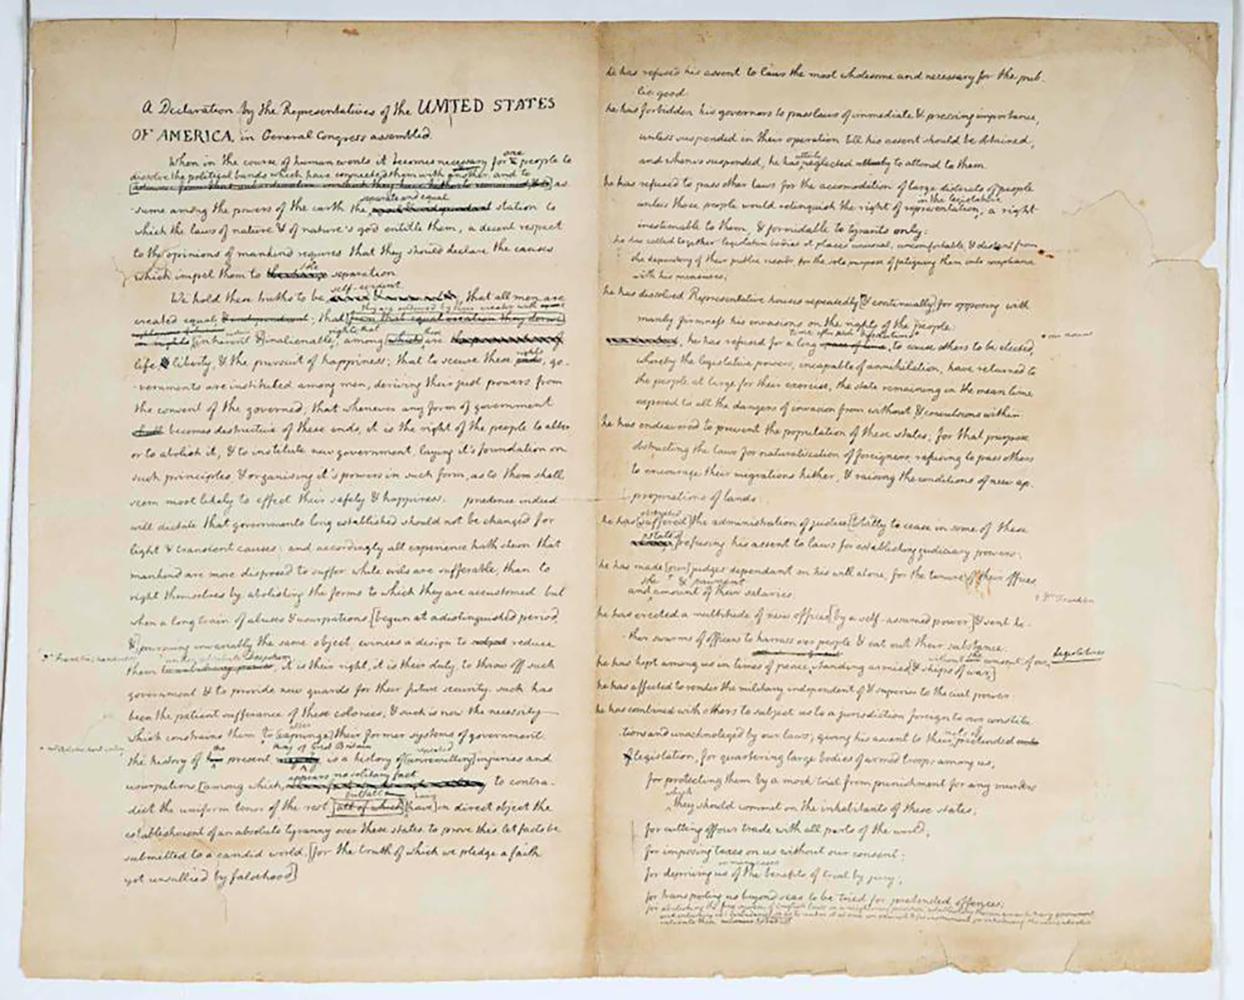 A Declaration by the Representatives of the UNITED STATES
OF AMERICA, in General Congress assembled.
one
When in the course of human events it becomes necessary for a people to
dissolve the political bands which have connected them with another, and to
advance from that subordination in which they have hitherto remained, & to as-
separate and equal
-sume among the powers of the earth the equal & independant station to
which the laws of nature & of nature's god entitle them, a decent respect
to the opinions of mankind requires that they should declare the causes
the
which impel them to the change separation
self-evident
We hold these truths to be sacred & undeniable, that all men are
they are endowed by their creator with
created equal & independent; that from that equal creation they derive
rights that
in rights inherent & inalienable, among which are the preservation of
life, & liberty, & the pursuit of happiness; that to secure these rights
ends, go-
-vernments are instituted among men, deriving their just powers from
the consent of the governed; that whenever any form of government
shall becomes destructive of these ends, it is the right of the people to alter
or to abolish it, & to institute new government, laying it's foundation on
such principles & organising it's powers in such form, as to them shall
seem most likely to effect their safety & happiness. prudence indeed
will dictate that governments long established should not be changed for
light & transient causes: and accordingly all experience hath shewn that
mankind are more disposed to suffer while evils are sufferable, than to
right themselves by abolishing the forms to which they are accustomed. but
when a long train of abuses & usurpations [begun at a distinguished period,
& pursuing invariably the same object, evinces a design to reduce
under absolute Despotism
them, it is their right, it is their duty, to throw off such
government & to provide new guards for their future security. such has
been the patient sufferance of these colonies; & such is now the necessity
alter
which constrains them to [expunge] their former systems of government.
the king of Great Britain repeated
the history of his present majesty is a history of [unremitting] injuries and
appears no solitary fact
usurpations, [among which, to contra-
but all having
-dict the uniform tenor of the rest [all of which] [have] in direct object the
establishment of an absolute tyranny over these states. to prove this let facts be
submitted to a candid world, [for the truth of which we pledge a faith
yet unsullied by falsehood]
he has refused his assent to laws the most wholesome and necessary for the pub-
-lic good.
he has forbidden his governors to pass laws of immediate & pressing importance,
unless suspended in their operation till his assent should be obtained;
utterly
and when so suspended, he has neglected utterly to attend to them.
he has refused to pass other laws for the accomodation of large districts of people
in the legislature
unless those people would relinquish the right of representation, a right
inestimable to them, & formidable to tyrants only:
he has called together legislative bodies at places unusual, uncomfortable & distant from
the depository of their public records for the sole purpose of fatiguing them into compliance
with his measures;
he has dissolved Representative houses repeatedly [& continually] for opposing with
manly firmness his invasions on the rights of the people:
time after such dissolutions
he has refused for a long space of time, to cause others to be elected,
whereby the legislative powers, incapable of annihilation, have returned to
the people at large for their exercise, the state remaining in the mean time
exposed to all the dangers of invasion from without & convulsions within:
he has endeavored to prevent the population of these states; for that purpose
obstructing the laws for naturalization of foreigners, refusing to pass others
to encourage their migrations hither, & raising the conditions of new ap-
-propriations of lands:
obstructed
he has [suffered] the administration of justice [totally to cease in some of these
states] refusing his assent to laws for establishing judiciary powers:
he has made [our] judges dependant on his will alone, for the tenure of their offices,
the & payment
and amount of their salaries:
Dr. Franklin
he has erected a multitude of new offices [by a self-assumed power] & sent hi-
-ther swarms of officers to harrass our people & eat out their substance:
without the consent of our legislatures
he has kept among us in times of peace, standing armies [& ships of war]
he has affected to render the military independent of & superior to the civil power:
he has combined with others to subject us to a jurisdiction foreign to our constitu-
-tions and unacknoleged by our laws; giving his assent to their pretended acts
of legislation, for quartering large bodies of armed troops among us;
for protecting them by a mock trial from punishment for any murders
which
they should commit on the inhabitants of these states;
for cutting off our trade with all parts of the world;
for imposing taxes on us without our consent;
in many cases
for depriving us of the benefits of trial by jury;
for transporting us beyond seas to be tried for pretended offences;